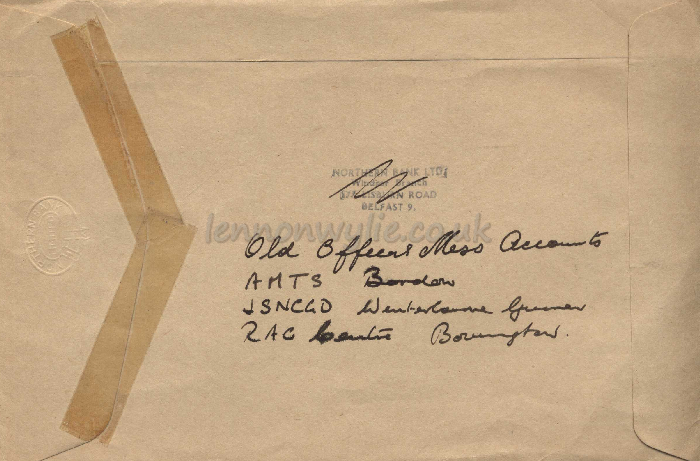 NORTHERN BANK LTD
Windsor Branch
LISBURN ROAD
BELFAST 9.
lennonwylie.co.uk
Old Officers Mess Accounts
AMTS Bordon
JSNCGD Winterbourne Gunner
RAC Centre Bovington.